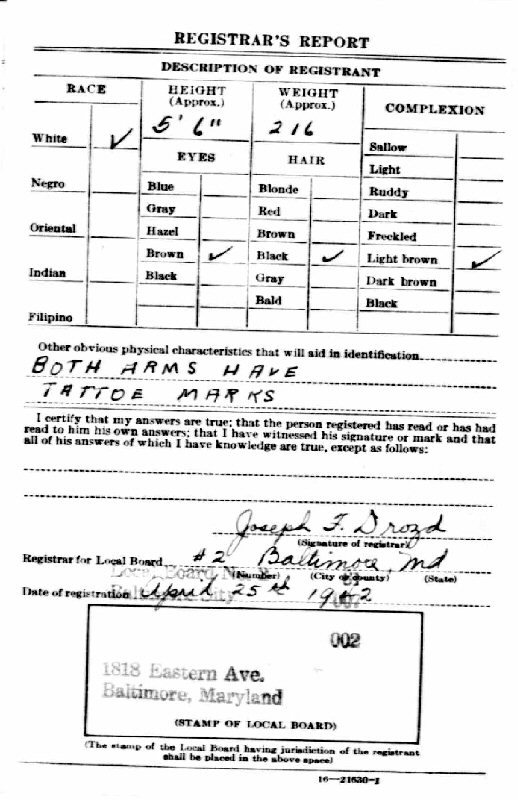 REGISTRAR'S REPORT
DESCRIPTION OF REGISTRANT
RACE
HEIGHT
(Approx.)
WEIGHT
(Approx.)
COMPLEXION
5' 6"
216
White ✓
EYES
HAIR
Sallow
Light
Negro
Blue
Blonde
Ruddy
Gray
Red
Dark
Oriental
Hazel
Brown
Freckled
Brown ✓
Black ✓
Light brown ✓
Indian
Black
Gray
Dark brown
Bald
Black
Filipino
Other obvious physical characteristics that will aid in identification
BOTH ARMS HAVE
TATTOE MARKS
I certify that my answers are true; that the person registered has read or has had
read to him his own answers; that I have witnessed his signature or mark and that
all of his answers of which I have knowledge are true, except as follows:
Joseph F. Drozd
(Signature of registrar)
Registrar for Local Board #2 Baltimore, Md
Local Board
(Number) (City or county) (State)
Baltimore City
Date of registration April 25th 1942
002
1818 Eastern Ave.
Baltimore, Maryland
(STAMP OF LOCAL BOARD)
(The stamp of the Local Board having jurisdiction of the registrant
shall be placed in the above space)
16—21630-1